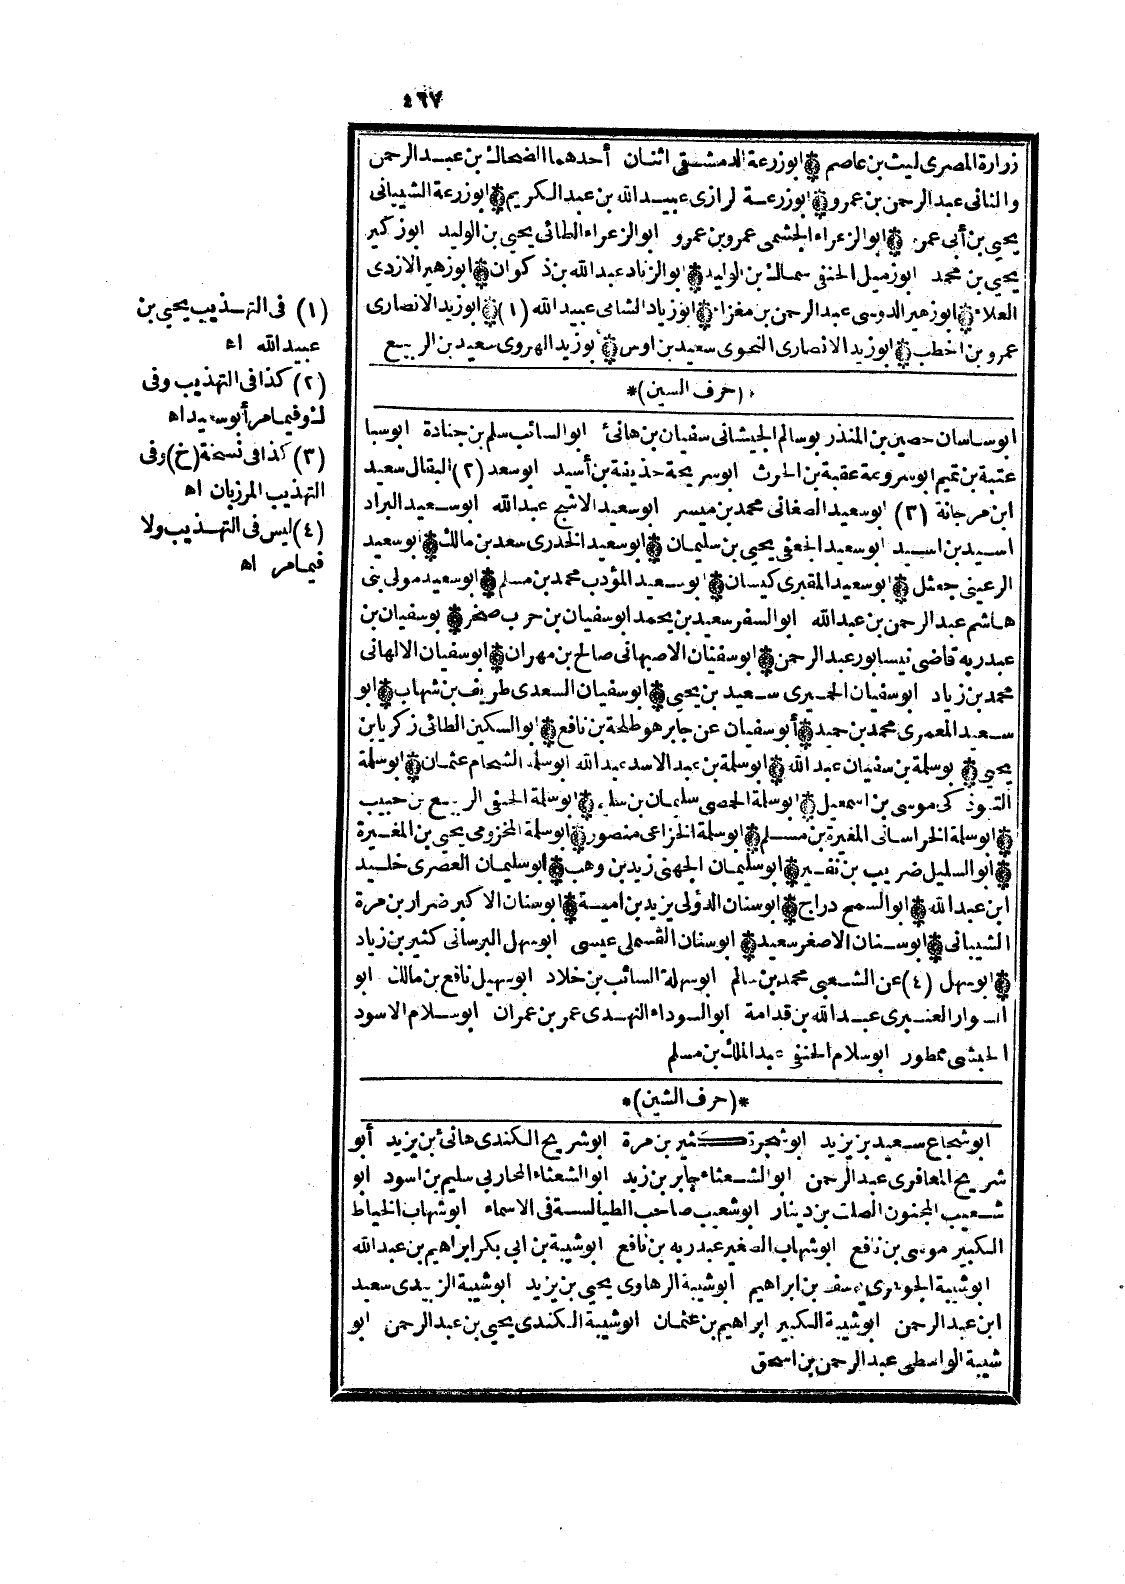 ٤٦٧
زرارة المصرى ليث بن عاصم ۞ ابو زرعة الدمشقى اثنان أحدهما الضحاك بن عبد الرحمن
والثانى عبد الرحمن بن عمرو ۞ ابوزرعة لرازى عبيد الله بن عبد الكريم ۞ ابوزرعة الشيبانى
يحيى بن أبى عمر ۞ ابو الزعراء الجشمى عمرو بن عمرو ابو الزعراء الطائى يحيى بن الوليد ابو زكير
يحيى بن محمد ابو زميل الحنفى سماك بن الوليد ۞ ابو الزناد عبد الله بن ذكوان ۞ ابو زهير الازدى
العلاء ۞ ابو زهير الدوسى عبد الرحمن بن مغراء ۞ ابو زياد الشامى عبيد الله (١) ۞ ابو زيد الانصارى
عمرو بن اخطب ۞ ابو زيد الانصارى النحوى سعيد بن اوس ۞ بو زيد الهروى سعيد بن الربيع
*(حرف السين)*
ابو ساسان حصين بن المنذر بو سالم الجيشانى سفيان بن هانئ ابو السائب سلم بن جنادة ابو سبا
عتبة بن تميم ابو سروعة عقبة بن الحرث ابو سريحة حذيفة بن أسيد ابو سعد (٢) البقال سعيد
ابن مرجانة (٣) ابو سعيد الصغانى محمد بن ميسر ابو سعيد الاشج عبد الله ابو سعيد البراد
اسيد بن اسيد ابو سعيد الجعفى يحيى بن سليمان ۞ ابو سعيد الخدرى سعد بن مالك ۞ ابو سعيد
الرعينى جعثل ۞ ابو سعيد المقبرى كيسان ۞ ابو سعيد المؤدب محمد بن مسلم ۞ ابو سعيد مولى بنى
هاشم عبد الرحمن بن عبد الله ابو السفر سعيد بن يحمد ابو سفيان بن حرب صخر ۞ بو سفيان بن
عبدربه قاضى نيسابور عبد الرحمن ۞ ابو سفيان الاصبهانى صالح بن مهران ۞ ابو سفيان الالهانى
محمد بن زياد ابو سفيان الحميرى سعيد بن يحيى ۞ ابو سفيان السعدى طريف بن شهاب ۞ ابو
سعيد المعمرى محمد بن حميد ۞ أبو سفيان عن جابر هو طلحة بن نافع ۞ ابو السكين الطائى زكريا بن
يحيى ۞ بو سلمة بن سفيان عبد الله ۞ ابو سلمة بن عبد الاسد عبد الله ابو سلمة الشحام عثمان ۞ ابو سلمة
التبوذكى موسى بن اسمعيل ۞ ابو سلمة الحمصى سليمان بن سليم ۞ ابو سلمة الحنفى الربيع بن حبيب
۞ ابو سلمة الخراسانى المغيرة بن مسلم ۞ ابو سلمة الخزاعى منصور ۞ ابو سلمة المخزومى يحيى بن المغيرة
۞ أبو السليل ضريب بن نقير ۞ ابو سليمان الجهنى زيد بن وهب ۞ ابو سليمان العصرى خليد
ابن عبد الله ۞ ابو السمح دراج ۞ ابو سنان الدؤلى يزيد بن امية ۞ ابو سنان الاكبر ضرار بن مرة
الشيبانى ۞ ابو سنان الاصغر سعيد ۞ ابو سنان القسملى عيسى ابو سهل البرسانى كثير بن زياد
۞ ابو سهل (٤) عن الشعبى محمد بن سالم ابو سهلة السائب بن خلاد ابو سهيل نافع بن مالك ابو
السوار العنبرى عبد الله بن قدامة ابو السوداء النهدى عمر بن عمران ابو سلام الاسود
الحبشى ممطور ابو سلام الحنفى عبد الملك بن مسلم
*(حرف الشين)*
ابو شجاع سعيد بن يزيد ابو شجرة كثير بن مرة ابو شريح الكندى هانئ بن يزيد أبو
شريح المعافرى عبد الرحمن ابو الشعثاء جابر بن زيد ابو الشعثاء المحاربى سليم بن اسود ابو
شعيب المجنون الصلت بن دينار ابو شعيب صاحب الطيالسة فى الاسماء ابو شهاب الخياط
الكبير موسى بن نافع ابو شهاب الصغير عبدربه بن نافع ابو شيبة بن ابى بكر ابراهيم بن عبد الله
ابو شيبة الجوهرى يوسف بن ابراهيم ابو شيبة الرهاوى يحيى بن يزيد ابو شيبة الزبيدى سعيد
ابن عبد الرحمن ابو شيبة الكبير ابراهيم بن عثمان ابو شيبة الكندى يحيى بن عبد الرحمن ابو
شيبة الواسطى عبد الرحمن بن اسحق
(١) فى التهذيب يحيى بن
عبيد الله اه
(٢) كذا فى التهذيب وفى
ك وفيما مر أبو سعيد اه
(٣) كذا فى نسخة (خ) وفى
التهذيب المرزبان اه
(٤) ليس فى التهذيب ولا
فيما مر اه